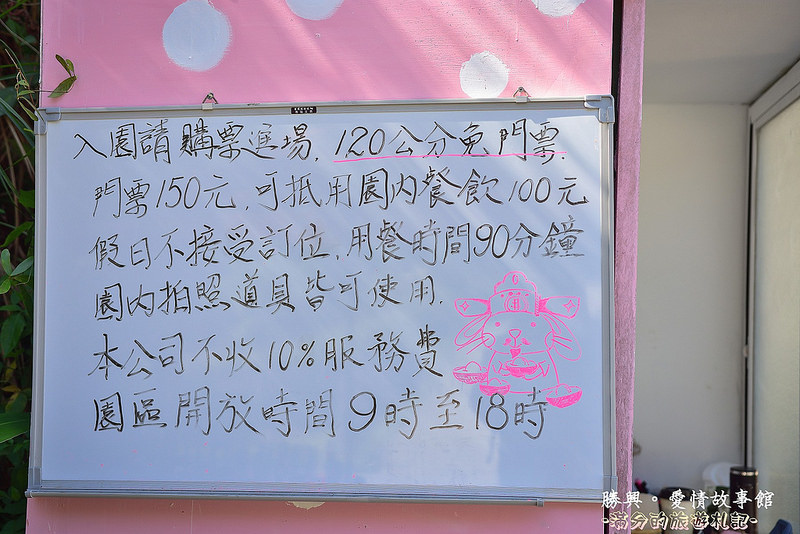 入園請購票進場. 120公分免門票.
門票150元. 可抵用園內餐飲100元
假日不接受訂位. 用餐時間90分鐘
園內拍照道具皆可使用.
本公司不收10%服務費
園區開放時間9時至18時
勝興。愛情故事館
-滿分的旅遊札記-